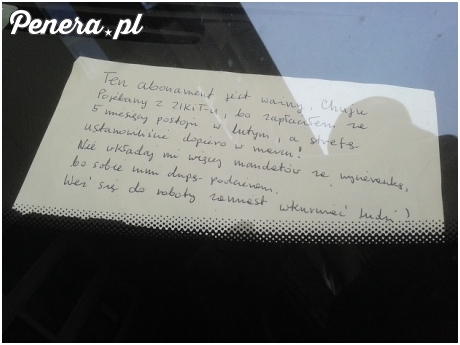 Penera.pl
Ten abonament jest ważny, Chuju
Pojebany z ZIKiT-u, bo zapłaciłem za
5 miesięcy postoju w lutym, a strefę
ustanowiliście dopiero w marcu!
Nie wkładaj mi więcej mandatów za wycieraczkę,
bo sobie nimi dupę podcieram.
Weź się do roboty zamiast wkurwiać ludzi!